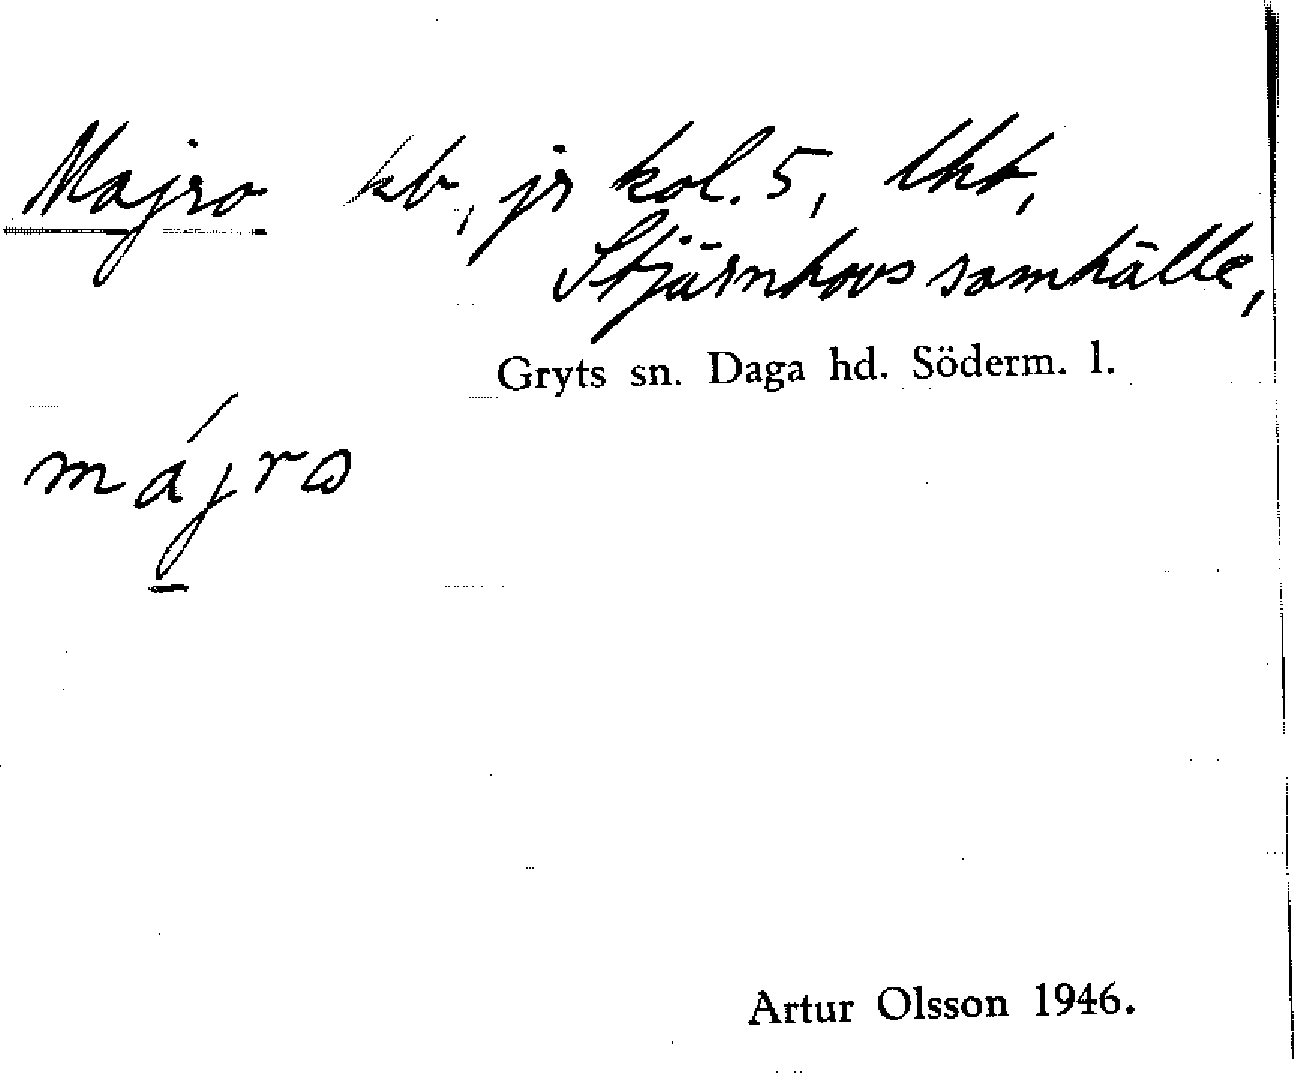 Majro kb, jr kol. 5, lht,
Stjärnhovs samhälle,
Gryts sn. Daga hd. Söderm. l.
májrω
Artur Olsson 1946.